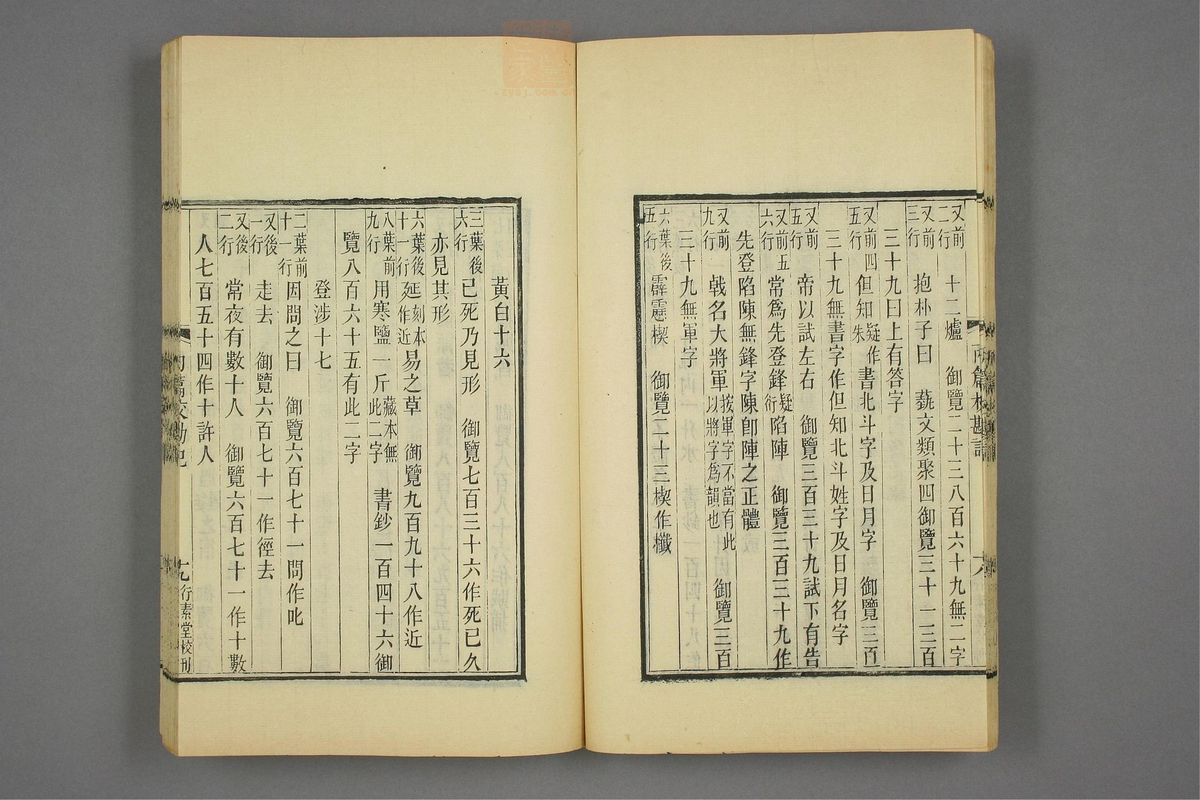 又前二行 十二爐 御覽二十三八百六十九無二字
又前三行 抱朴子曰 蓺文類聚四御覽三十一三百
三十九曰上有答字
又前四五行 但知疑作朱書北斗字及日月字 御覽三百
三十九無書字作但知北斗姓字及日月名字
又前五行 帝以試左右 御覽三百三十九試下有告
又前五六行 常爲先登鋒疑衍陷陣 御覽三百三十九作
先登陷陳無鋒字陳卽陣之正體
又前九行 戟名大將軍按軍字不當有此以將字爲韻也 御覽三百
三十九無軍字
六葉後五行 霹靂楔 御覽二十三楔作櫼
內篇校勘記
黃白十六
三葉後六行 已死乃見形 御覽七百三十六作死已久
亦見其形
六葉後十一行 延刻本作近易之草 御覽九百九十八作近
八葉前九行 用寒鹽一斤藏本無此二字 書鈔一百四十六御
覽八百六十五有此二字
登涉十七
二葉前十一行 因問之曰 御覽六百七十一問作叱
又後一行 走去 御覽六百七十一作徑去
又後二行 常夜有數十人 御覽六百七十一作十數
人七百五十四作十許人
內篇校勘記
九
行素堂校刊